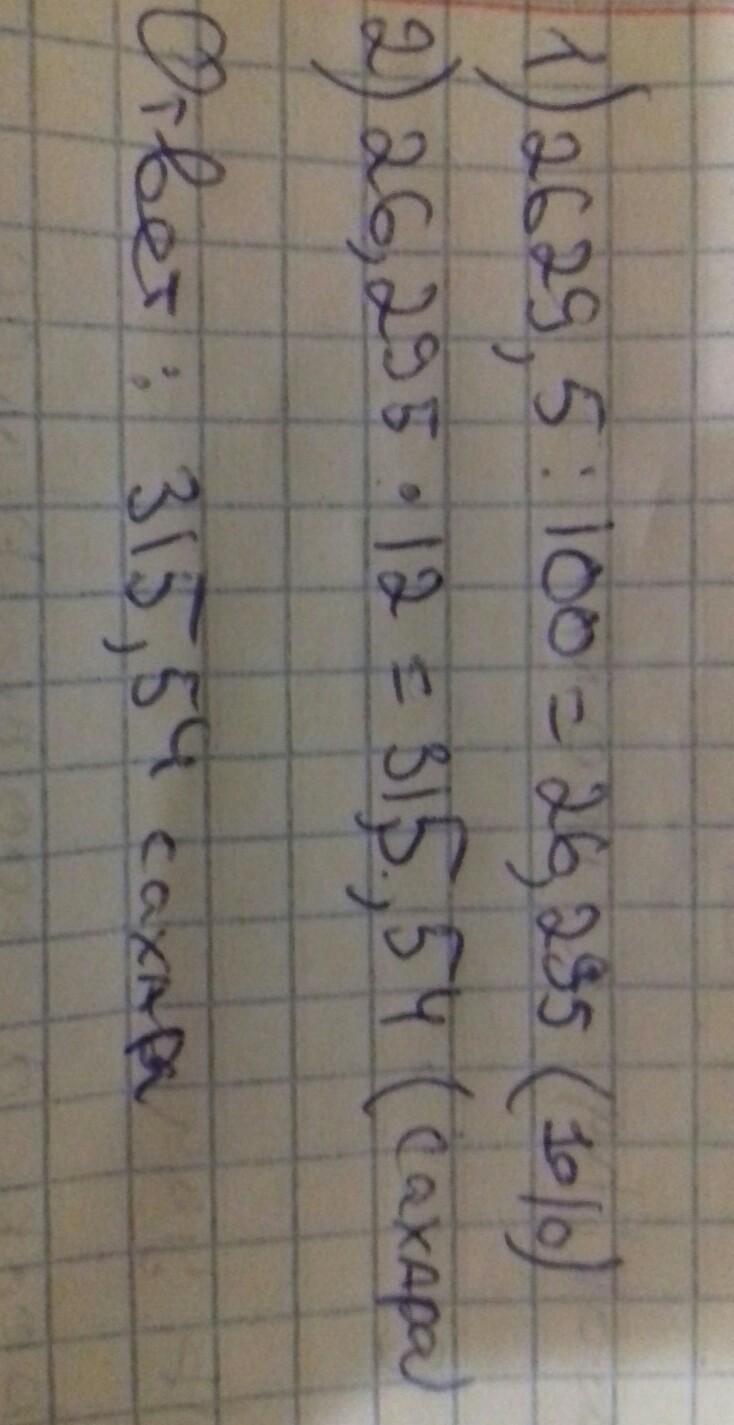 1) 2629,5 : 100 = 26,295 (1%)
2) 26,295 · 12 = 315,54 (сахара)
Ответ : 315,54 сахара